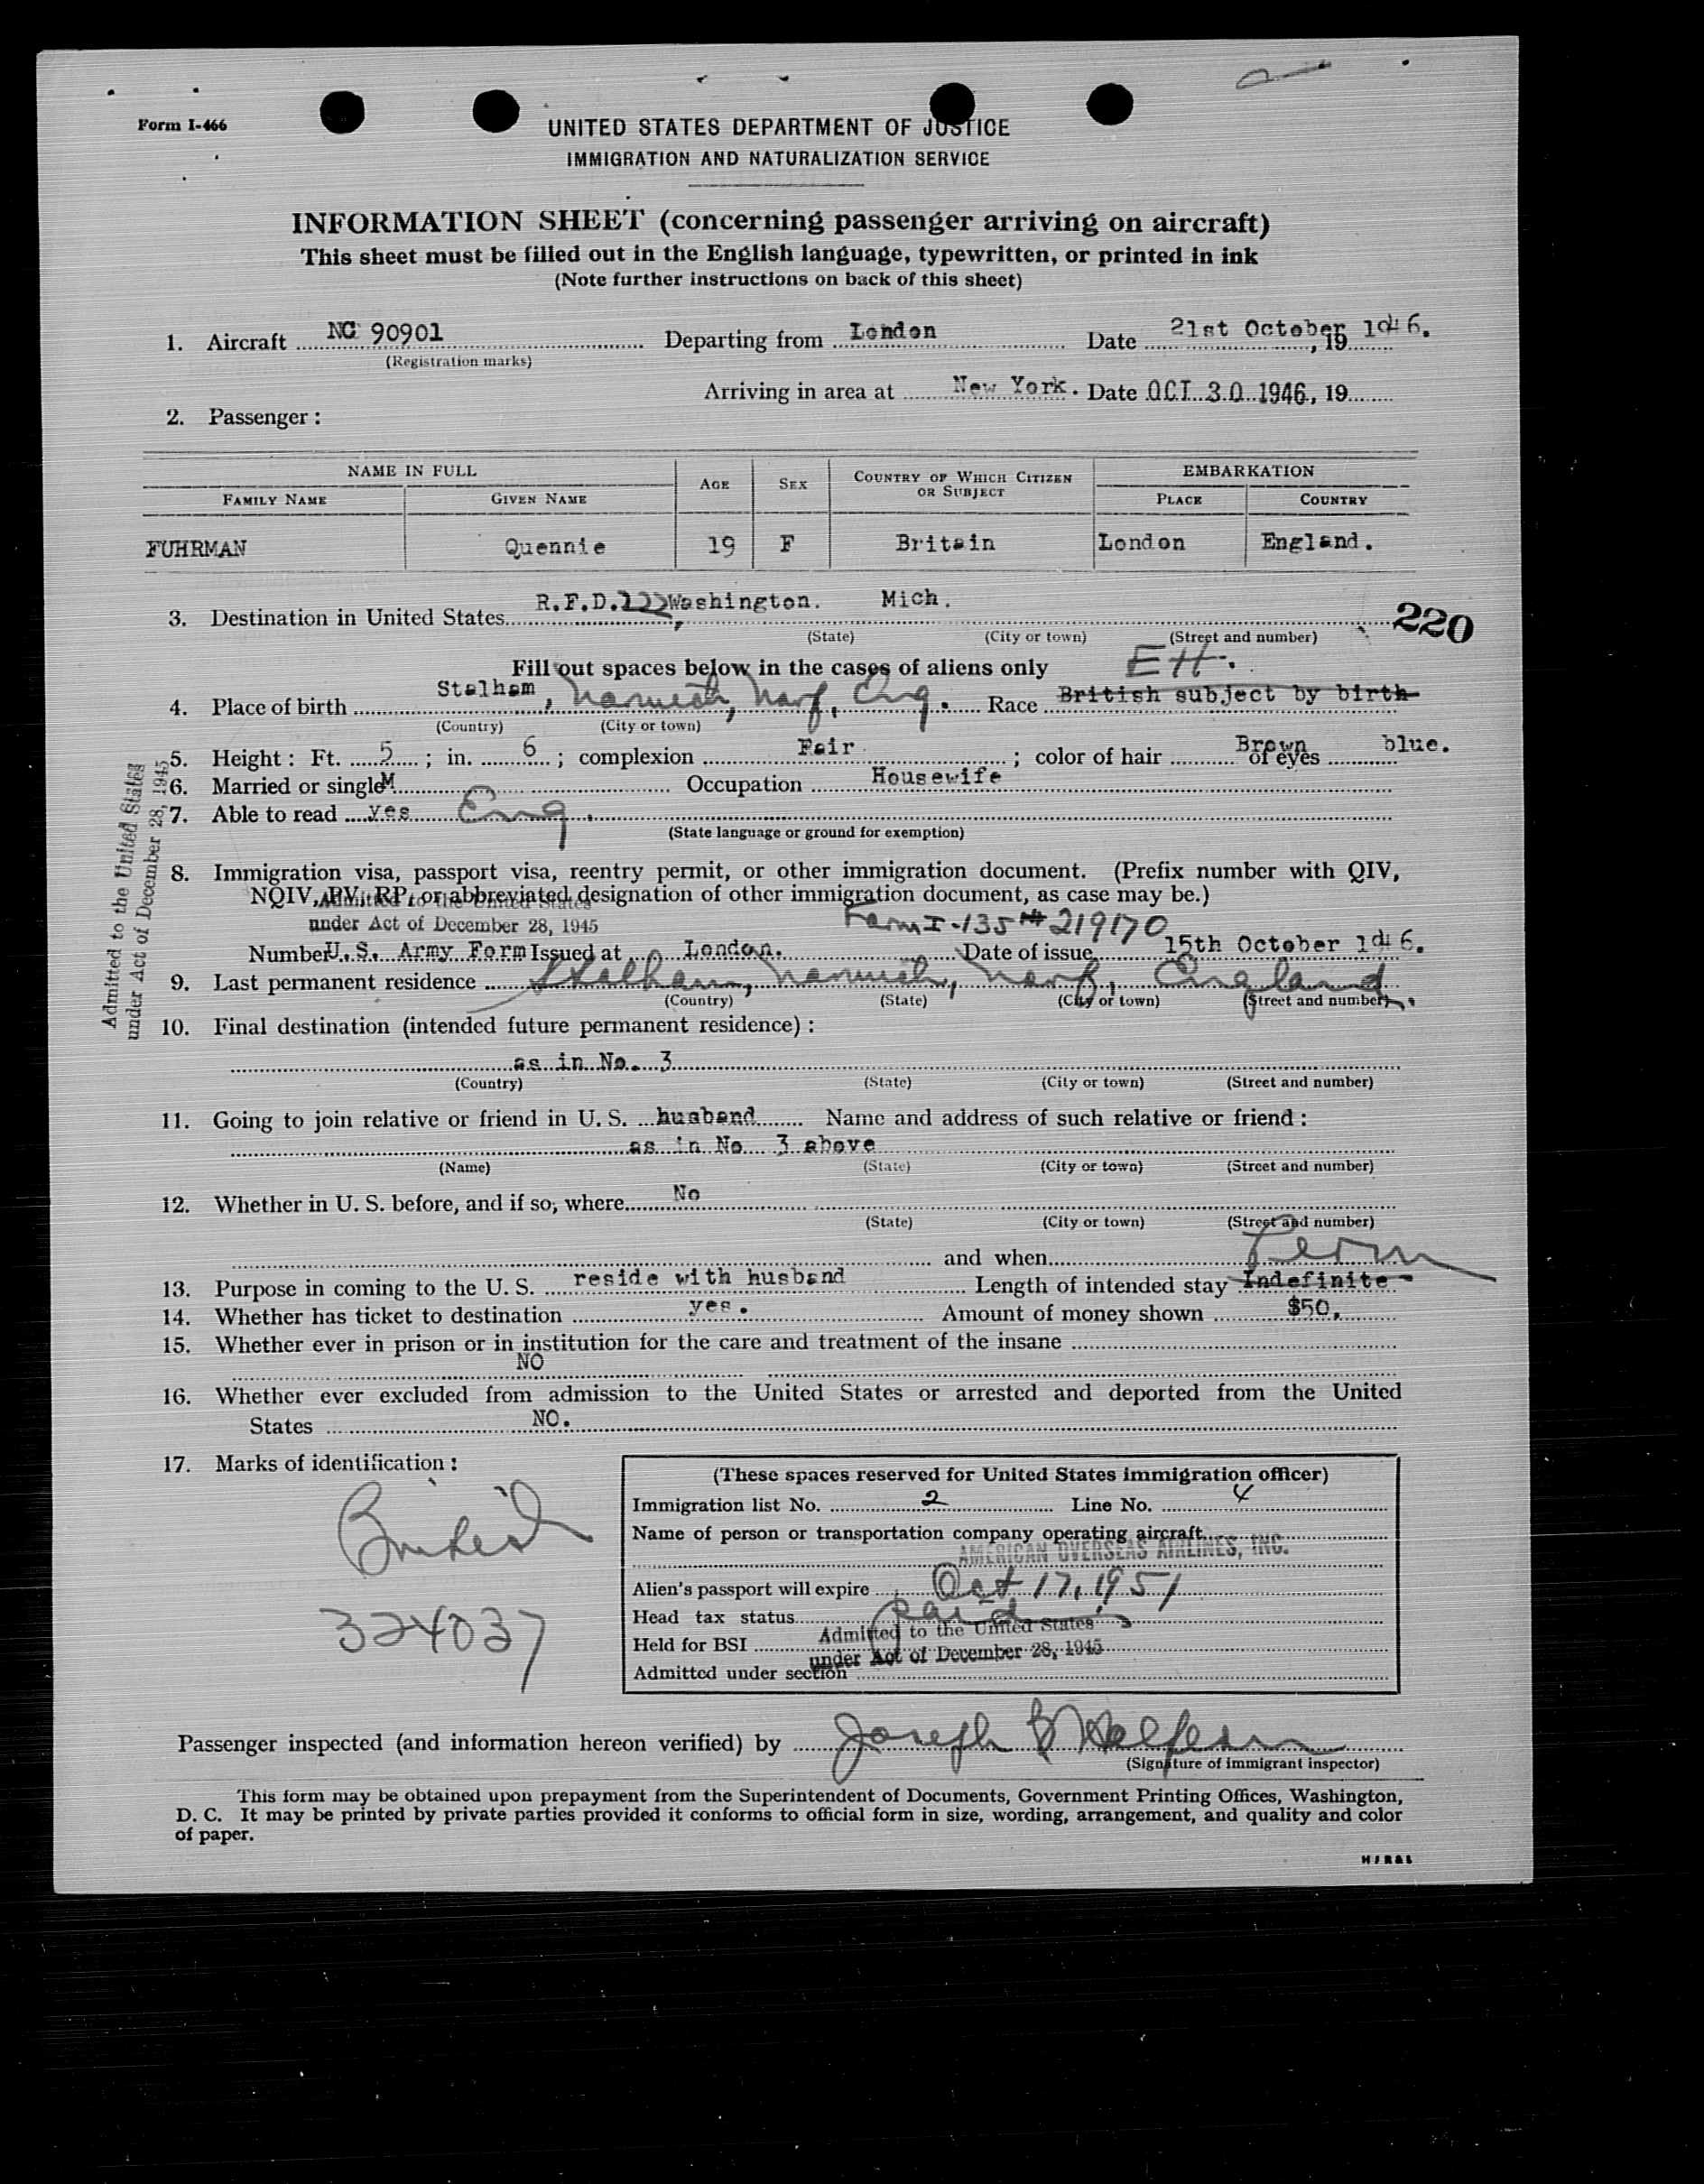 Form I-466
UNITED STATES DEPARTMENT OF JUSTICE
IMMIGRATION AND NATURALIZATION SERVICE
INFORMATION SHEET (concerning passenger arriving on aircraft)
This sheet must be filled out in the English language, typewritten, or printed in ink
(Note further instructions on back of this sheet)
1. Aircraft NC 90901 Departing from London Date 21st October 1946., 19
(Registration marks)
Arriving in area at New York. Date OCT 30 1946, 19
2. Passenger:
NAME IN FULL AGE SEX COUNTRY OF WHICH CITIZEN OR SUBJECT EMBARKATION
FAMILY NAME GIVEN NAME PLACE COUNTRY
FUHRMAN Quennie 19 F Britain London England.
3. Destination in United States R.F.D. 222 Washington. Mich.
(State) (City or town) (Street and number)
220
Fill out spaces below in the cases of aliens only EH.
4. Place of birth Stalham, Norwich, Norf, Eng. Race British subject by birth
(Country) (City or town)
5. Height: Ft. 5; in. 6; complexion Fair; color of hair Brown of eyes blue.
6. Married or single M Occupation Housewife
7. Able to read yes Eng.
(State language or ground for exemption)
8. Immigration visa, passport visa, reentry permit, or other immigration document. (Prefix number with QIV,
NQIV, PV, RP, or abbreviated designation of other immigration document, as case may be.)
Admitted to the United States
under Act of December 28, 1945
Form I-135 # 219170
Number U.S. Army Form Issued at London. Date of issue 15th October 1946.
9. Last permanent residence Stalham, Norwich, Norf, England
(Country) (State) (City or town) (Street and number)
Admitted to the United States
under Act of December 28, 1945
10. Final destination (intended future permanent residence):
as in No. 3
(Country) (State) (City or town) (Street and number)
11. Going to join relative or friend in U. S. husband Name and address of such relative or friend:
as in No 3 above
(Name) (State) (City or town) (Street and number)
12. Whether in U. S. before, and if so, where No
(State) (City or town) (Street and number)
and when
Perm
13. Purpose in coming to the U. S. reside with husband Length of intended stay Indefinite
14. Whether has ticket to destination yes. Amount of money shown $50.
15. Whether ever in prison or in institution for the care and treatment of the insane
NO
16. Whether ever excluded from admission to the United States or arrested and deported from the United
States NO.
17. Marks of identification:
British
324037
(These spaces reserved for United States immigration officer)
Immigration list No. 2 Line No. 4
Name of person or transportation company operating aircraft
AMERICAN OVERSEAS AIRLINES, INC.
Alien's passport will expire Oct 17, 1951
Head tax status Paid
Held for BSI Admitted to the United States
Admitted under section under Act of December 28, 1945
Passenger inspected (and information hereon verified) by Joseph B Halpern
(Signature of immigrant inspector)
This form may be obtained upon prepayment from the Superintendent of Documents, Government Printing Offices, Washington,
D. C. It may be printed by private parties provided it conforms to official form in size, wording, arrangement, and quality and color
of paper.